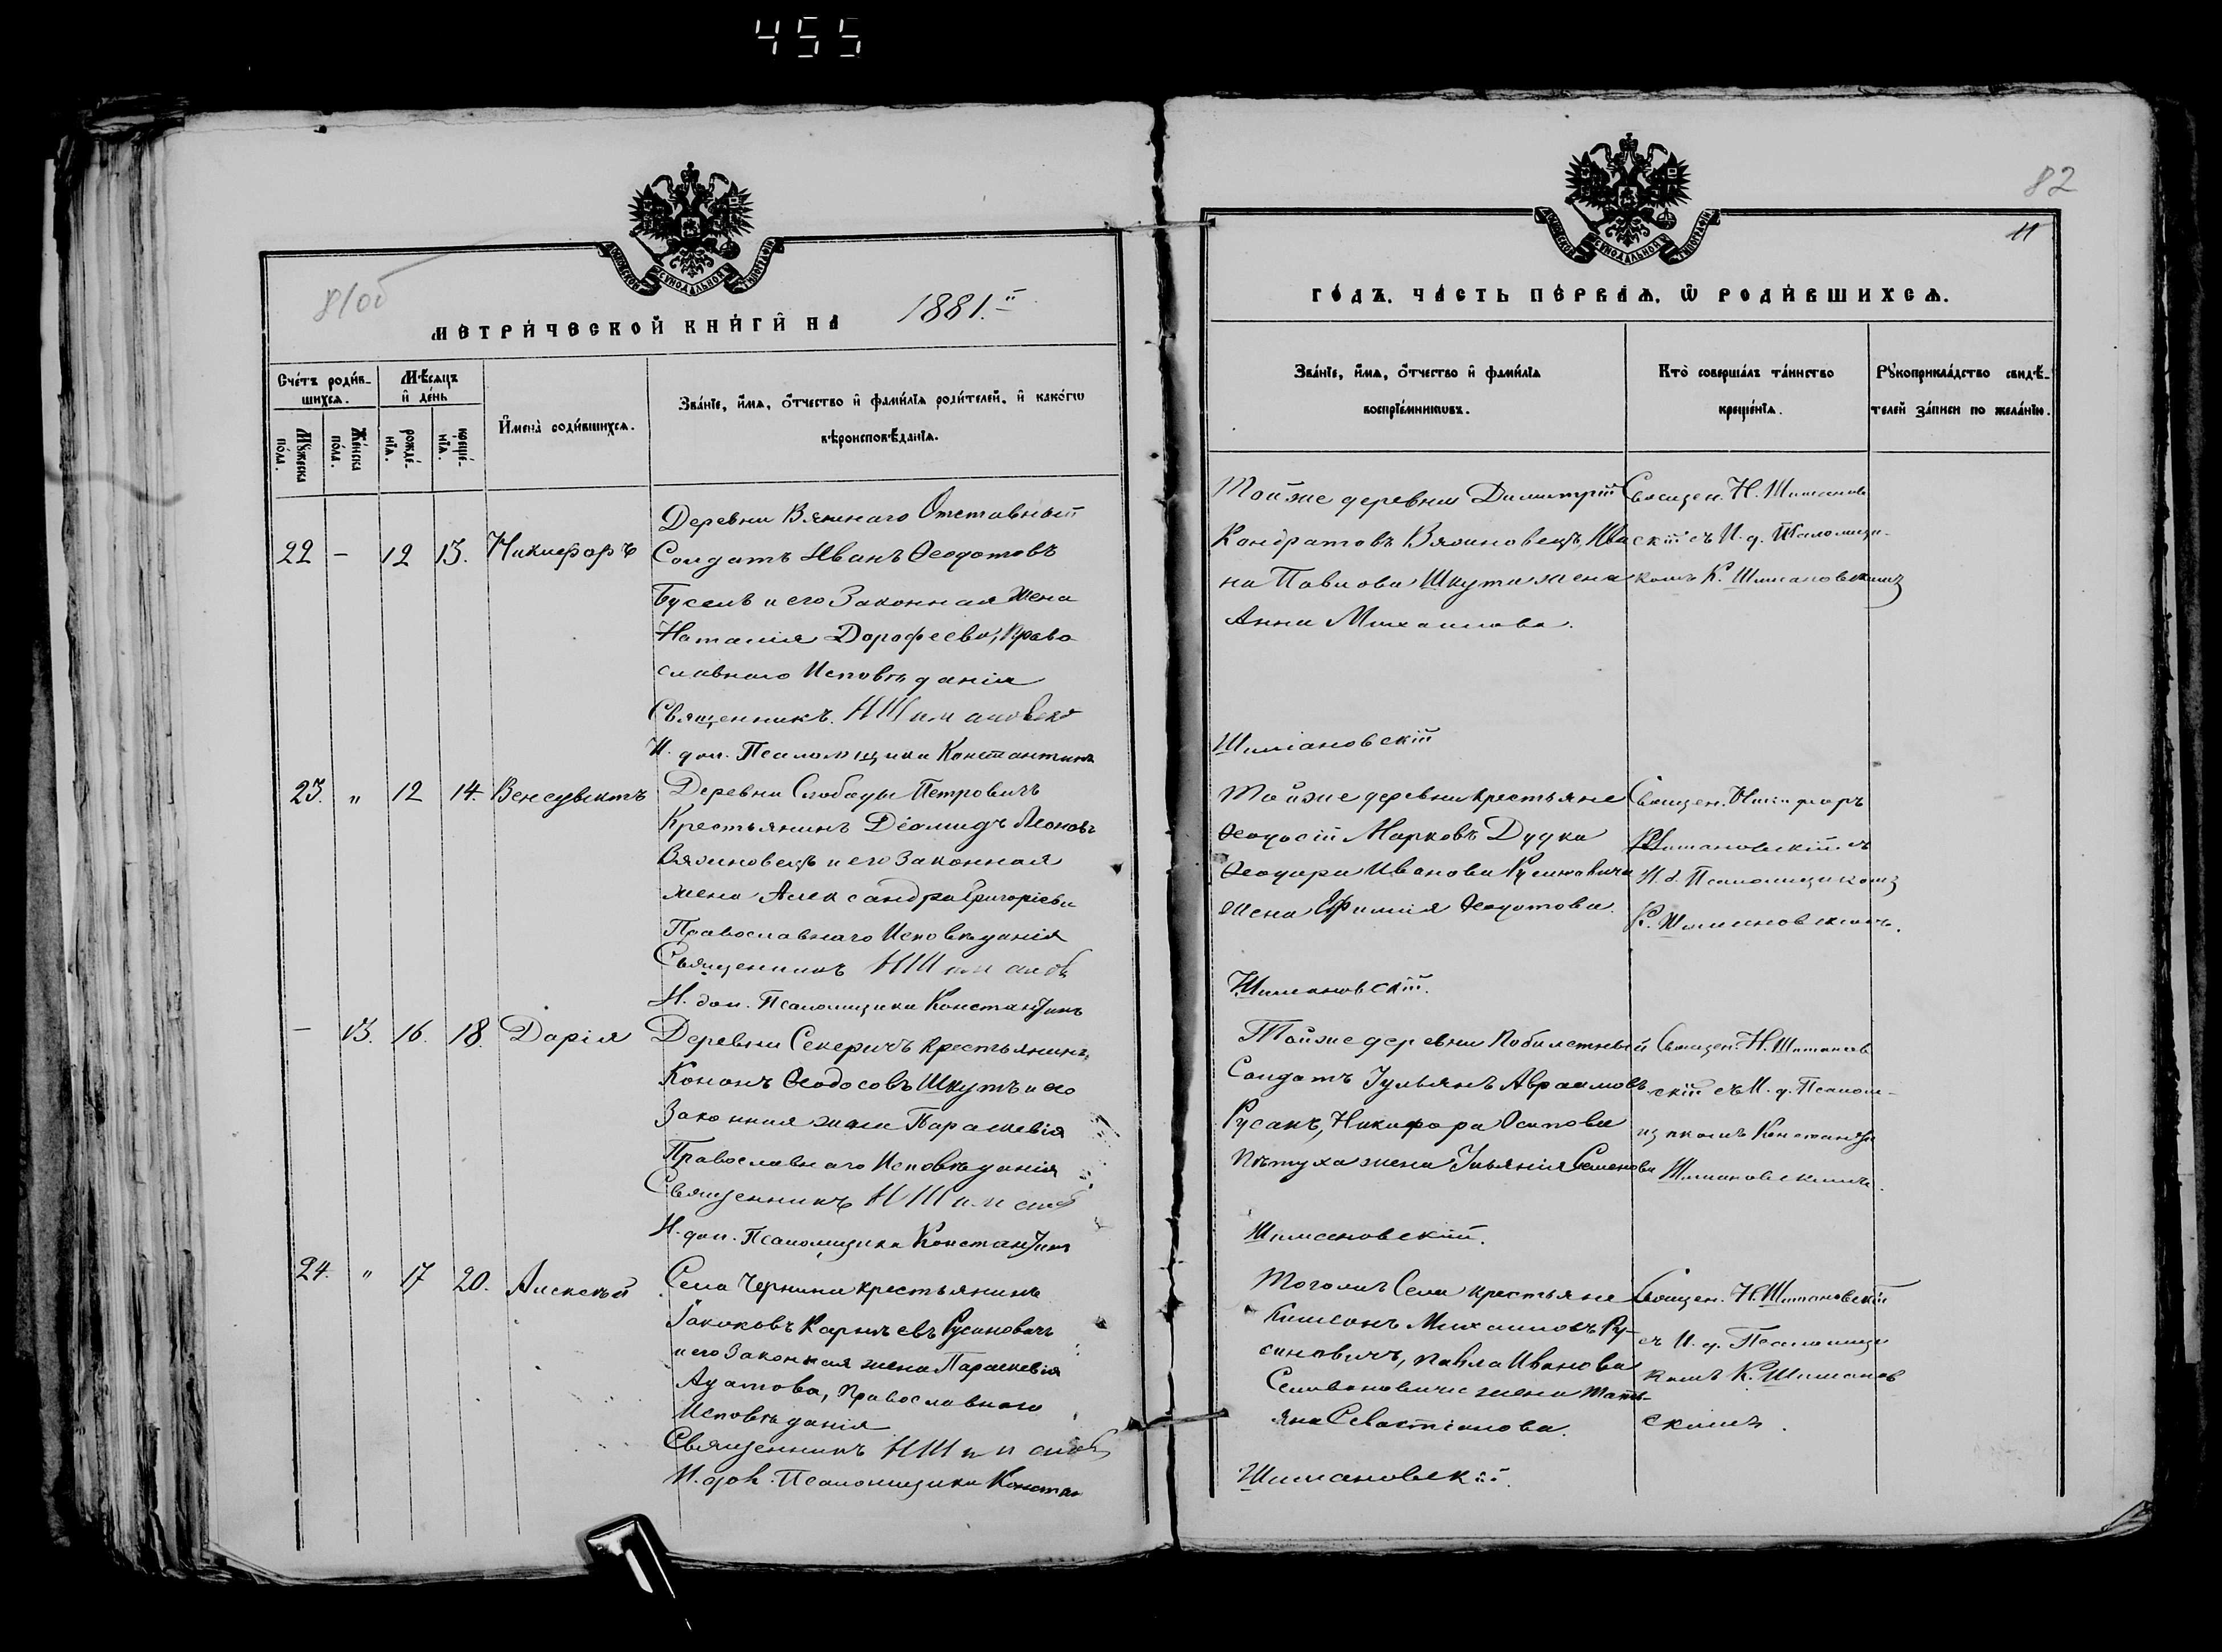 455
81об
МЕТРИ́ЧЕСКОЙ КНИ́ГИ НА 1881.й
Сче́тъ роди́в-
шихся.
Мѣ́сяцъ
и҆ де́нь
Му́жеска
по́ла.
Же́нска
по́ла.
рожде́-
нїѧ.
креще́-
нїѧ.
И҆мена̀ роди́вшихсѧ.
Зва́нїе, и҆́мѧ, ѻ҆́тчество и҆ фами́лїѧ роди́телей, и҆ како́гѡ
вѣроисповѣ́данїѧ.
22 - 12 13. Никифоръ
Деревни Вяжнаго Отставный
Солдатъ Иванъ Ѳеодотовъ
Буселъ и его Законная Жена
Наталія Дорофеева, Право
славнаго Исповѣданія
Священникъ. Н Шимановскій
И. дол. Псаломщика Константинъ
23. " 12 14. Венедиктъ
Деревни Слободы Петровичъ
Крестьянинъ Діомидъ Леоновъ
Вязиновецъ и его Законная
жена Александра Григоріева
Православнаго Исповѣданія
Священникъ Н Шиманов
И. дол. Псаломщика Константинъ
- 13. 16. 18. Дарія
Деревни Секеричъ крестьянинъ
Кононъ Ѳеодосовъ Шкутъ и его
Законная жена Параскевія
Православнаго Исповѣданія
Священникъ Н Шиманов
И. дол. Псаломщика Константинъ
24. " 17 20. Алексѣй
Села Чернина крестьянинъ
Карпѣевъ Русиновичъ
и его Законная жена Параскевія
Адамова, Православнаго
Исповѣданія
Священникъ Н Шиманов
И. дол. Псаломщика Констан
82
11
ГО́ДЪ. ЧА́СТЬ ПЕ́РВАѦ, Ѽ РОДИ́ВШИХСѦ.
Зва́нїе, и҆́мѧ, ѻ҆́тчество и҆ фами́лїѧ
воспрїе́мниковъ.
Кто̀ соверша́лъ та́инство
креще́нїѧ.
Рꙋкоприкла́дство свидѣ́-
телей за́писи по жела́нїю.
Той же деревни Димитрій
Кондратовъ Вязиновецъ, Ива
на Павлова Шкута жена
Анна Михаилова.
Священ. Н. Шиманов
скій съ И. д. Псаломщи-
комъ К. Шимановскимъ
Шимановскій
Той же деревни крестьяне
Ѳеодосій Марковъ Дудка
Ѳеодора Иванова Русиновича
жена Ефимія Ѳедотова.
Священ. Никифоръ
Шимановскій съ
И. д. Псаломщикомъ
К. Шимановскимъ.
Шимановскій.
Той же деревни Побилетный
Солдатъ Іульянъ Авраамовъ
Русакъ, Никифора Осипова
Пѣтуха жена Ульянія Семенова
Священ. Н. Шиманов
скій съ И. д. Псалом-
щикомъ Константи
Шимановскимъ.
Шимановскій.
Того же Села крестьяне
Михаиловъ Ру-
синовичъ, Павла Иванова
Селивановича жена Тать-
яна Севастіанова.
Священ. Н. Шимановскій
съ И. д. Псаломщи
комъ К. Шиманов
скимъ.
Шимановскій.